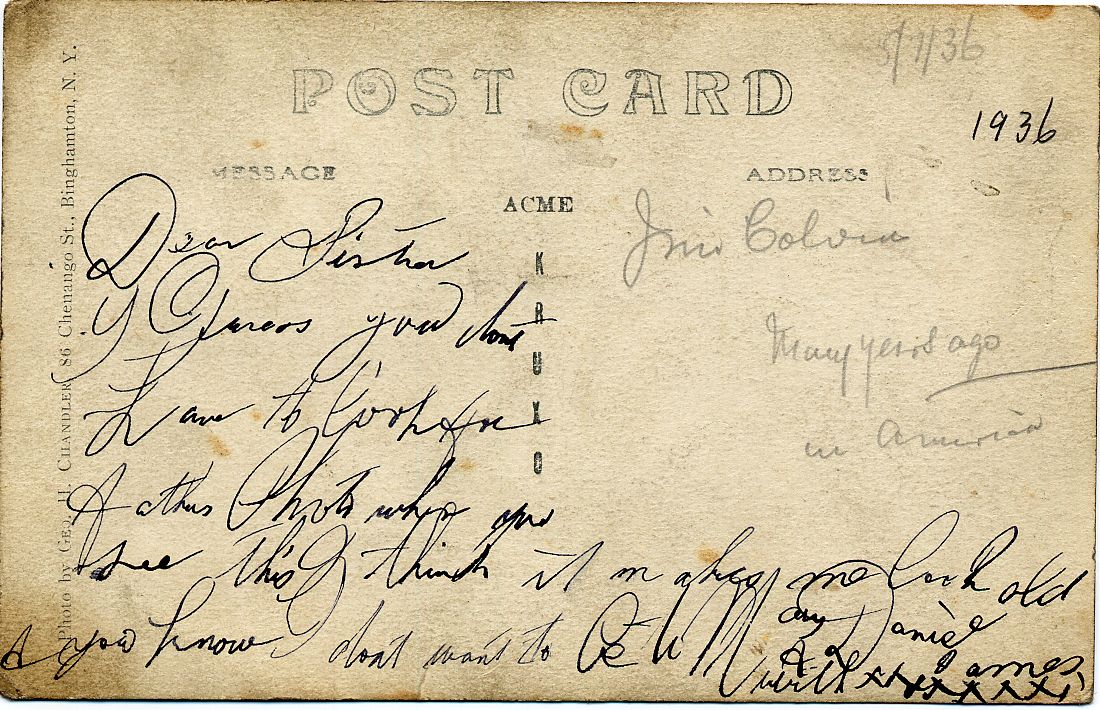 5/7/36
POST CARD
1936
MESSAGE
ADDRESS
ACME
KRUXO
Photo by GEO. H. CHANDLER, 86 Chenango St., Binghamton, N. Y.
Dear Sister
I Guess you dont
have to look for
Fathers Photo when you
see this I think it makes me look old
& you know I dont want to
Colvin
Many years ago
in America
Daniel
James
with xxxxxxxx